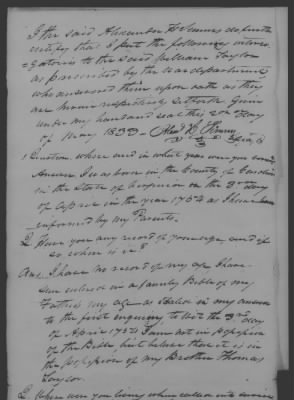 I the said Alexander H Simms do further
certify that I put the following interro
=gatories to the said William Taylor
as prescribed by the War department
who answered them upon oath as they
are herein respectively setforth Given
under my hand and seal this 20th day
of May 1833
1 Question where and in what year were you born
Answer I was born in the County of Caroline
in the State of on the 3rd day
of April in the year 1754 as I have been
informed by my Parents.
2 Have you any record of your age and if
so where is it?
Ans I have no record of my age I have
seen entered in a family Bible of my
Father my age as stated in my answer
to the first enquiry to wit the 3rd day
of April 1754 I am not in possession
of the Bible but believe that it is in
the possession of my Brother Thomas
Taylor.
3 Where were you living when called into service